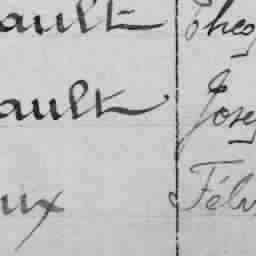 ault Theo
ault Jose
ux Féli